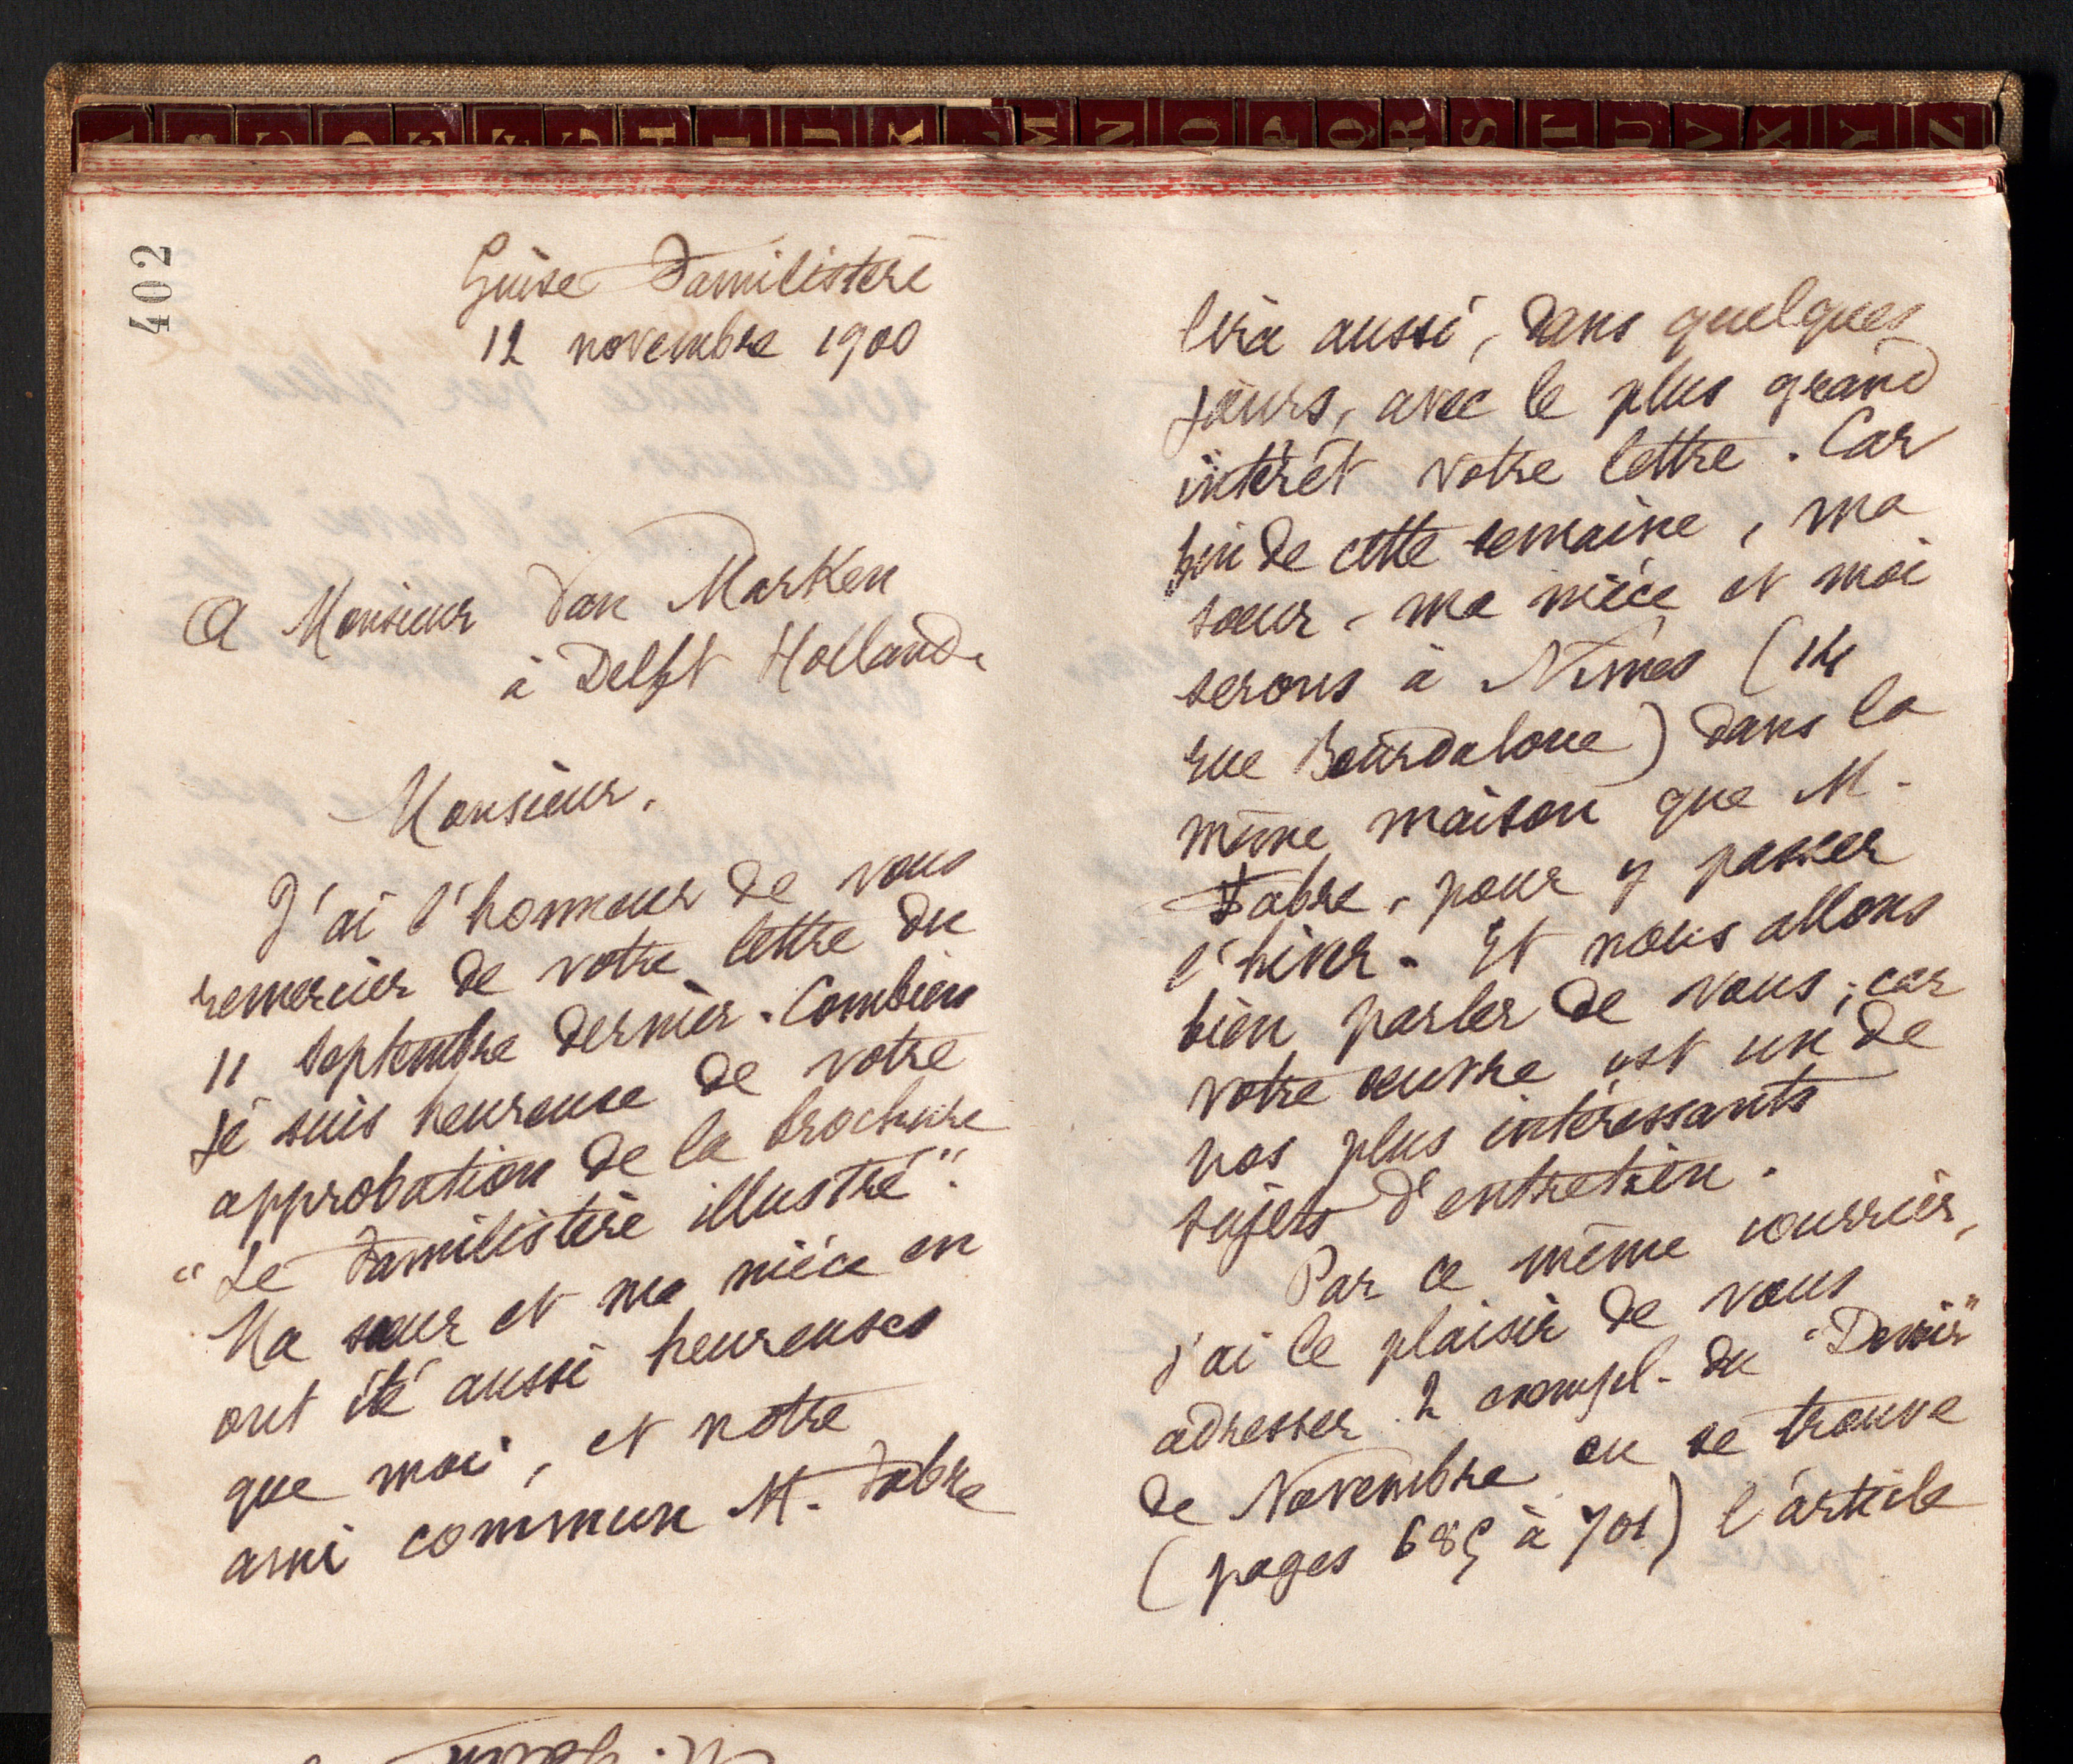 A B C D E F G H I J K L M N O P Q R S T U V X Y Z
402
Guise Familistère
12 novembre 1900
A Monsieur Van Marken
à Delft Hollande
Monsieur,
J'ai l'honneur de vous
remercier de votre lettre du
11 septembre dernier. Combien
je suis heureuse de votre
approbation de la brochure
"Le Familistère illustré".
Ma sœur et ma nièce en
ont été aussi heureuses
que moi, et notre
ami commun M. Fabre
lira aussi, dans quelques
jours, avec le plus grand
intérêt votre lettre. Car
fin de cette semaine, ma
sœur, ma nièce et moi
serons à Nîmes (14
rue Bourdaloue) dans la
même maison que M.
Fabre, pour y passer
l'hiver. Et nous allons
bien parler de vous; car
votre œuvre est un de
nos plus intéressants
sujets d'entretien.
Par ce même courrier,
j'ai le plaisir de vous
adresser 2 exempl. du "Devoir"
de Novembre où se trouve
(pages 685 à 701) l'article